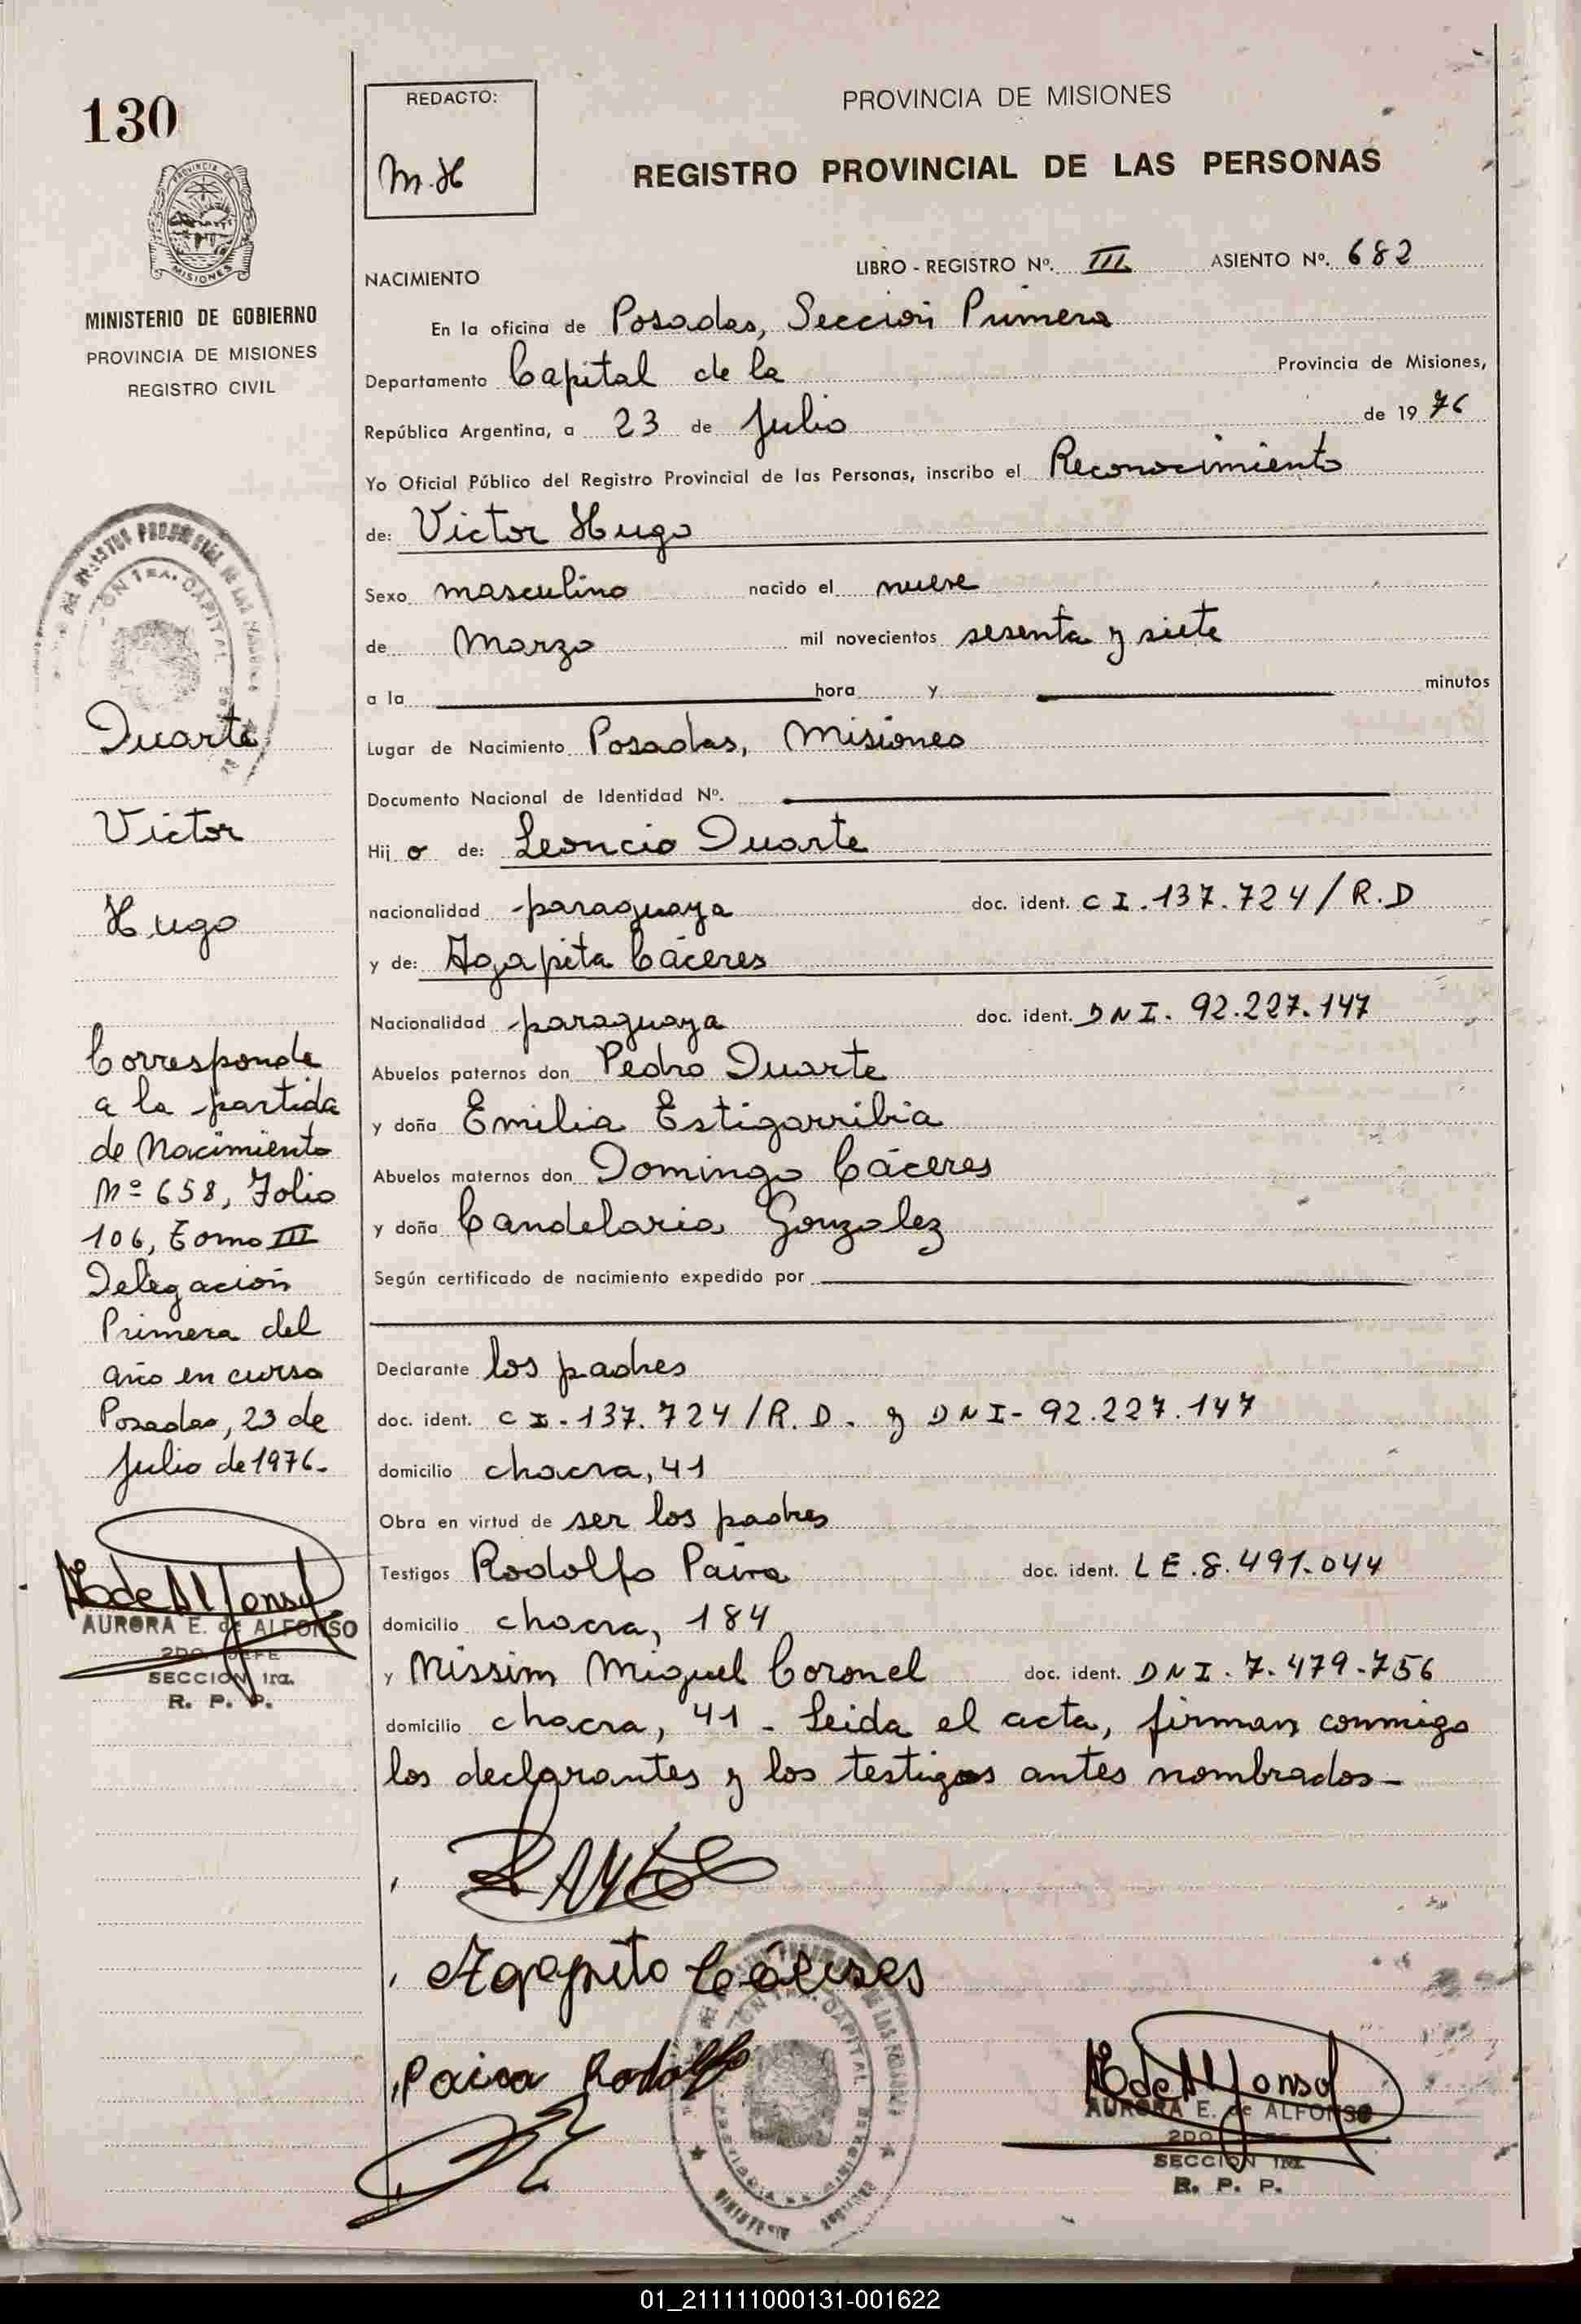 130
PROVINCIA DE MISIONES
MINISTERIO DE GOBIERNO
PROVINCIA DE MISIONES
REGISTRO CIVIL
Duarte
Victor
Hugo
Corresponde
a la partida
de Nacimiento
Nº 658, Folio
106, Tomo III
Delegación
Primera del
año en curso
Posadas, 23 de
Julio de 1976.
AURORA E. de ALFONSO
2DO JEFE
SECCION 1ra.
R. P. P.
REDACTO:
M.H
PROVINCIA DE MISIONES
REGISTRO PROVINCIAL DE LAS PERSONAS
LIBRO - REGISTRO Nº. III ASIENTO Nº. 682
NACIMIENTO
En la oficina de Posadas, Sección Primera
Departamento Capital de la Provincia de Misiones,
República Argentina, a 23 de Julio de 1976
Yo Oficial Público del Registro Provincial de las Personas, inscribo el Reconocimiento
de: Victor Hugo
Sexo masculino nacido el nueve
de Marzo mil novecientos sesenta y siete
a la hora y minutos
Lugar de Nacimiento Posadas, Misiones
Documento Nacional de Identidad Nº.
Hijo de: Leoncio Duarte
nacionalidad paraguaya doc. ident. C I. 137.724/R.D
y de: Agapita Cáceres
Nacionalidad paraguaya doc. ident. DNI. 92.227.147
Abuelos paternos don Pedro Duarte
y doña Emilia Estigarribia
Abuelos maternos don Domingo Cáceres
y doña Candelaria Gonzalez
Según certificado de nacimiento expedido por
Declarante los padres
doc. ident. C I - 137.724/R.D. y DNI- 92.227.147
domicilio chacra, 41
Obra en virtud de ser los padres
Testigos Rodolfo Paiva doc. ident. LE.8.491.044
domicilio chacra, 184
y Nissim Miguel Coronel doc. ident. DNI. 7.479.756
domicilio chacra, 41 - Leida el acta, firman conmigo
los declarantes y los testigos antes nombrados-
Agapito Cáceres
Paiva Rodolfo
AURORA E. de ALFONSO
2DO
SECCION 1ra.
R. P. P.
01_211111000131-001622